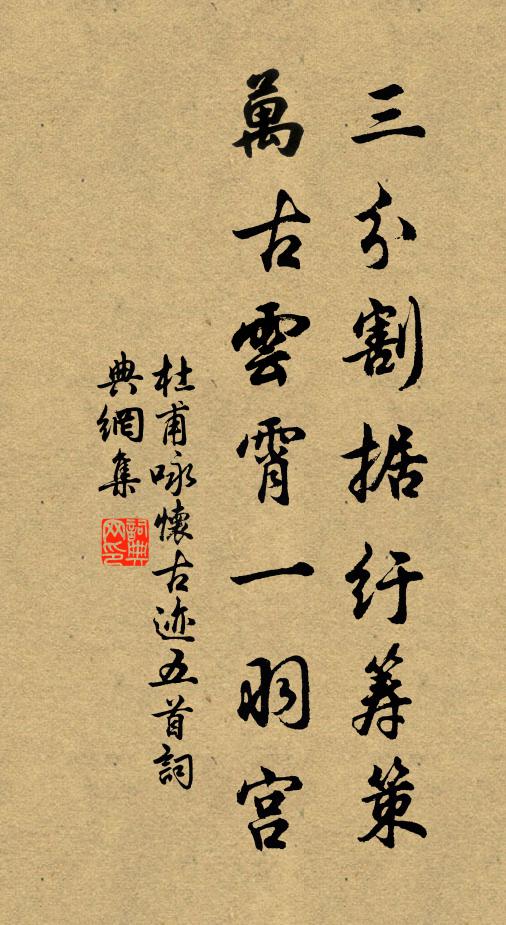 三分割据紆筹策
萬古雲霄一羽宫
杜甫咏懷古迹五首詞
典網集
詞典
网印